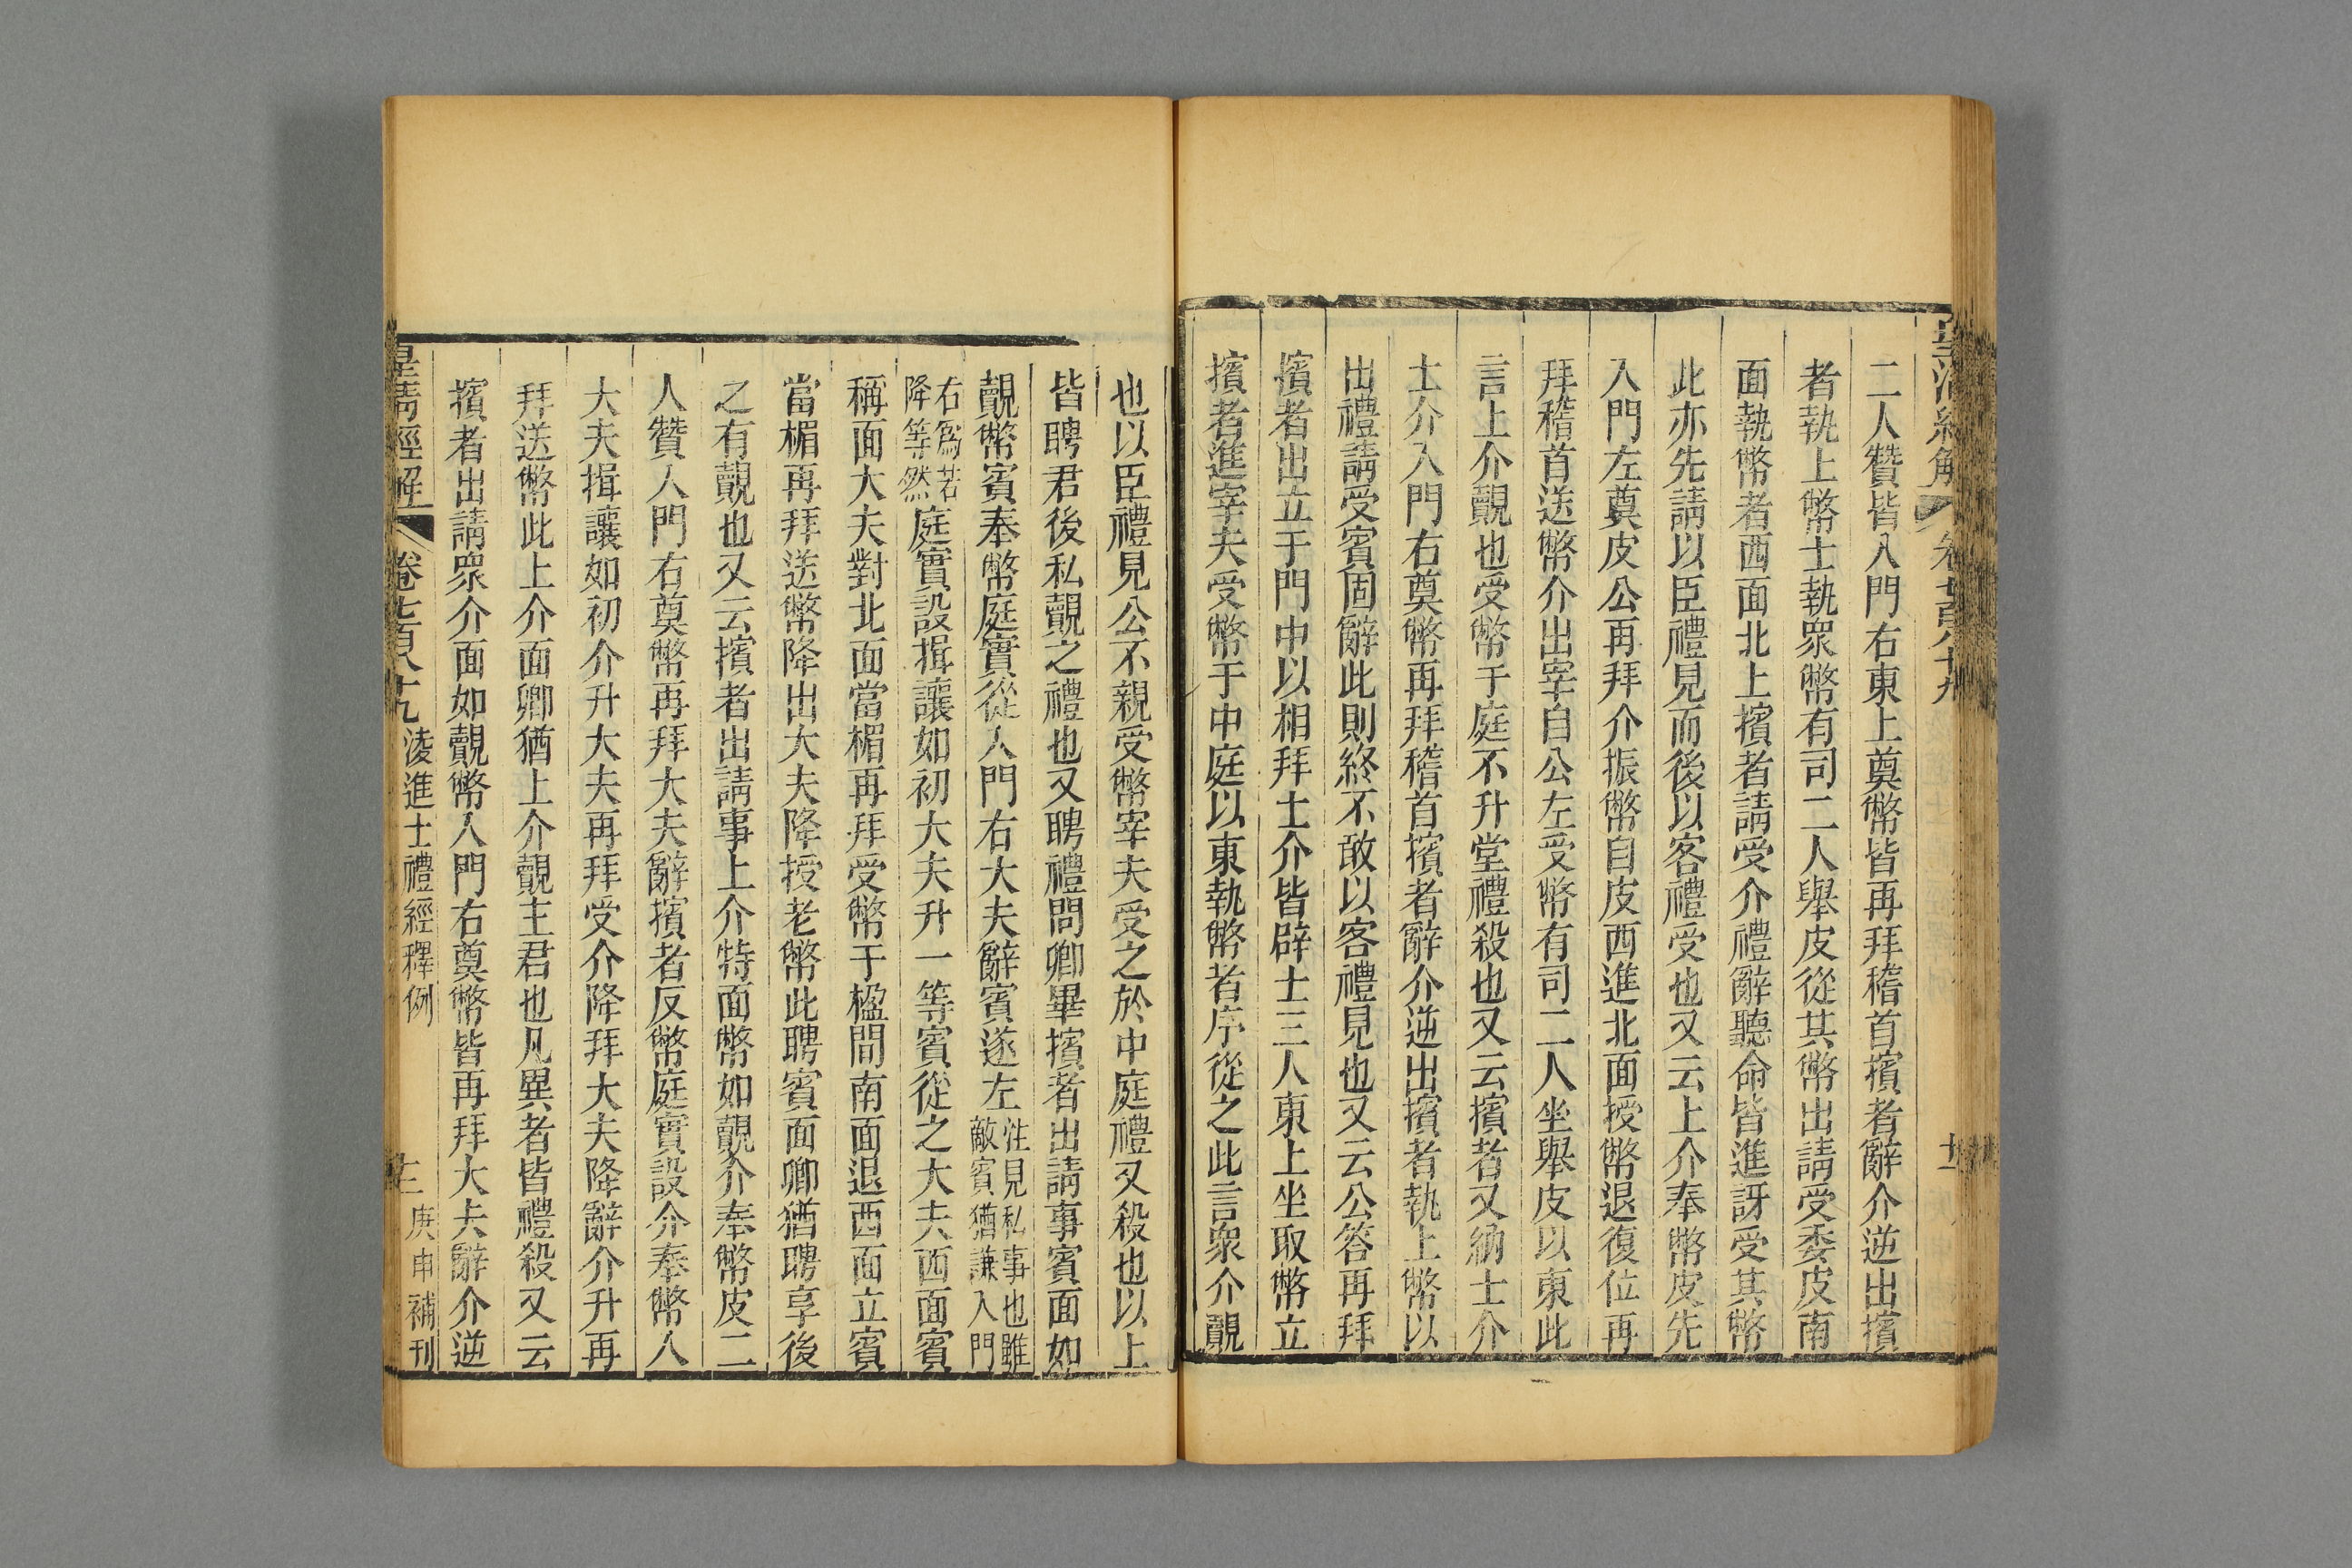 皇清經解
卷七百八十九
十一
二人贊皆入門右東上奠幣皆再拜稽首擯者辭介逆出擯
者執上幣士執眾幣有司二人舉皮從其幣出請受委皮南
面執幣者西面北上擯者請受介禮辭聽命皆進訝受其幣
此亦先請以臣禮見而後以客禮受也又云上介奉幣皮先
入門左奠皮公再拜介振幣自皮西進北面授幣退復位再
拜稽首送幣介出宰自公左受幣有司二人坐舉皮以東此
言上介覿也受幣于庭不升堂禮殺也又云擯者又納士介
士介入門右奠幣再拜稽首擯者辭介逆出擯者執上幣以
出禮請受賓固辭此則終不敢以客禮見也又云公答再拜
擯者出立于門中以相拜士介皆辟士三人東上坐取幣立
擯者進宰夫受幣于中庭以東執幣者序從之此言眾介覿
也以臣禮見公不親受幣宰夫受之於中庭禮又殺也以上
皆聘君後私覿之禮也又聘禮問卿畢擯者出請事賓面如
覿幣賓奉幣庭實從入門右大夫辭賓遂左
徃見私事也雖
敵賓猶謙入門
右為若
降等然
庭實設揖讓如初大夫升一等賓從之大夫西面賓
稱面大夫對北面當楣再拜受幣于楹間南面退西面立賓
當楣再拜送幣降出大夫降授老幣此聘賓面卿猶聘享後
之有覿也又云擯者出請事上介特面幣如覿介奉幣皮二
人贊入門右奠幣再拜大夫辭擯者反幣庭實設介奉幣入
大夫揖讓如初介升大夫再拜受介降拜大夫降辭介升再
拜送幣此上介面卿猶上介覿主君也凡異者皆禮殺又云
擯者出請眾介面如覿幣入門右奠幣皆再拜大夫辭介逆
皇清經解
卷七百八十九
淩進士禮經釋例
十二
庚申補刊